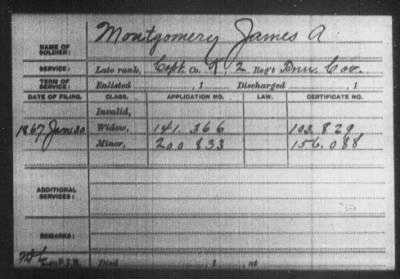 Montgomery James A.
NAME OF SOLDIER:
SERVICE: Late rank, Capt. Co. K, 2 Reg't Tenn. Cav.
TERM OF SERVICE: Enlisted , 1 Discharged , 1
DATE OF FILING. CLASS. APPLICATION NO. LAW. CERTIFICATE NO.
Invalid,
1867 Jan 30 Widow, 141.366 103.829
Minor, 200 833 156.088
ADDITIONAL SERVICES:
REMARKS:
Died , 1 at